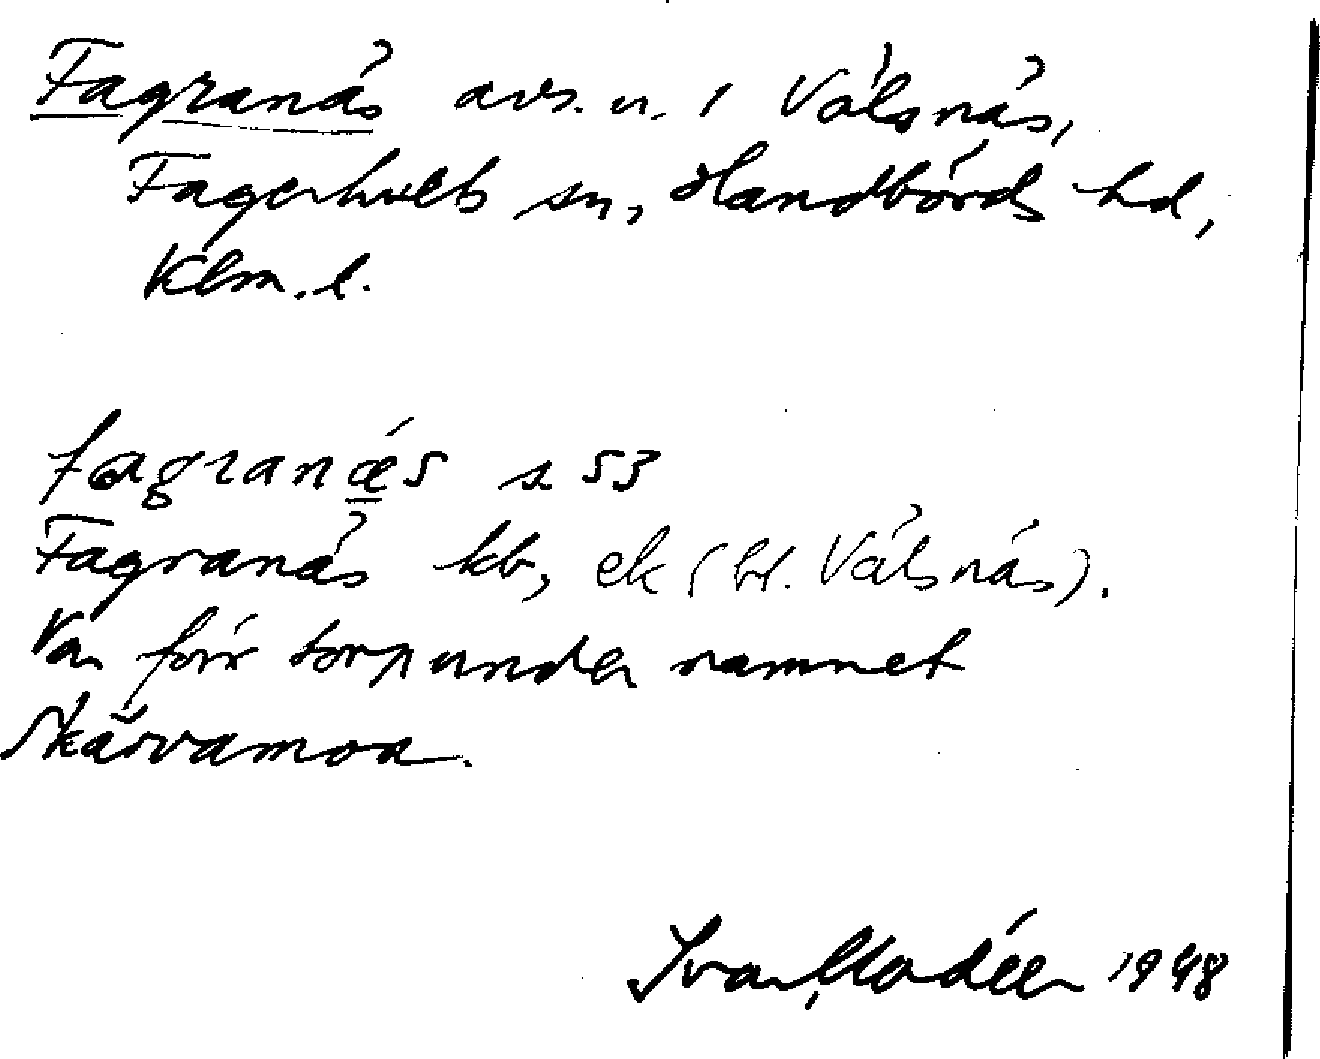 Fagranäs avs. u. i Välsnäs,
Fagerhults sn, Handbörds hd,
Klm. l.
fagranǽ̳s s. 53
Fagranäs kb, ek (br. Välsnäs).
Var förr torp under namnet
Skärvamon.
Ivar Modéer 1948